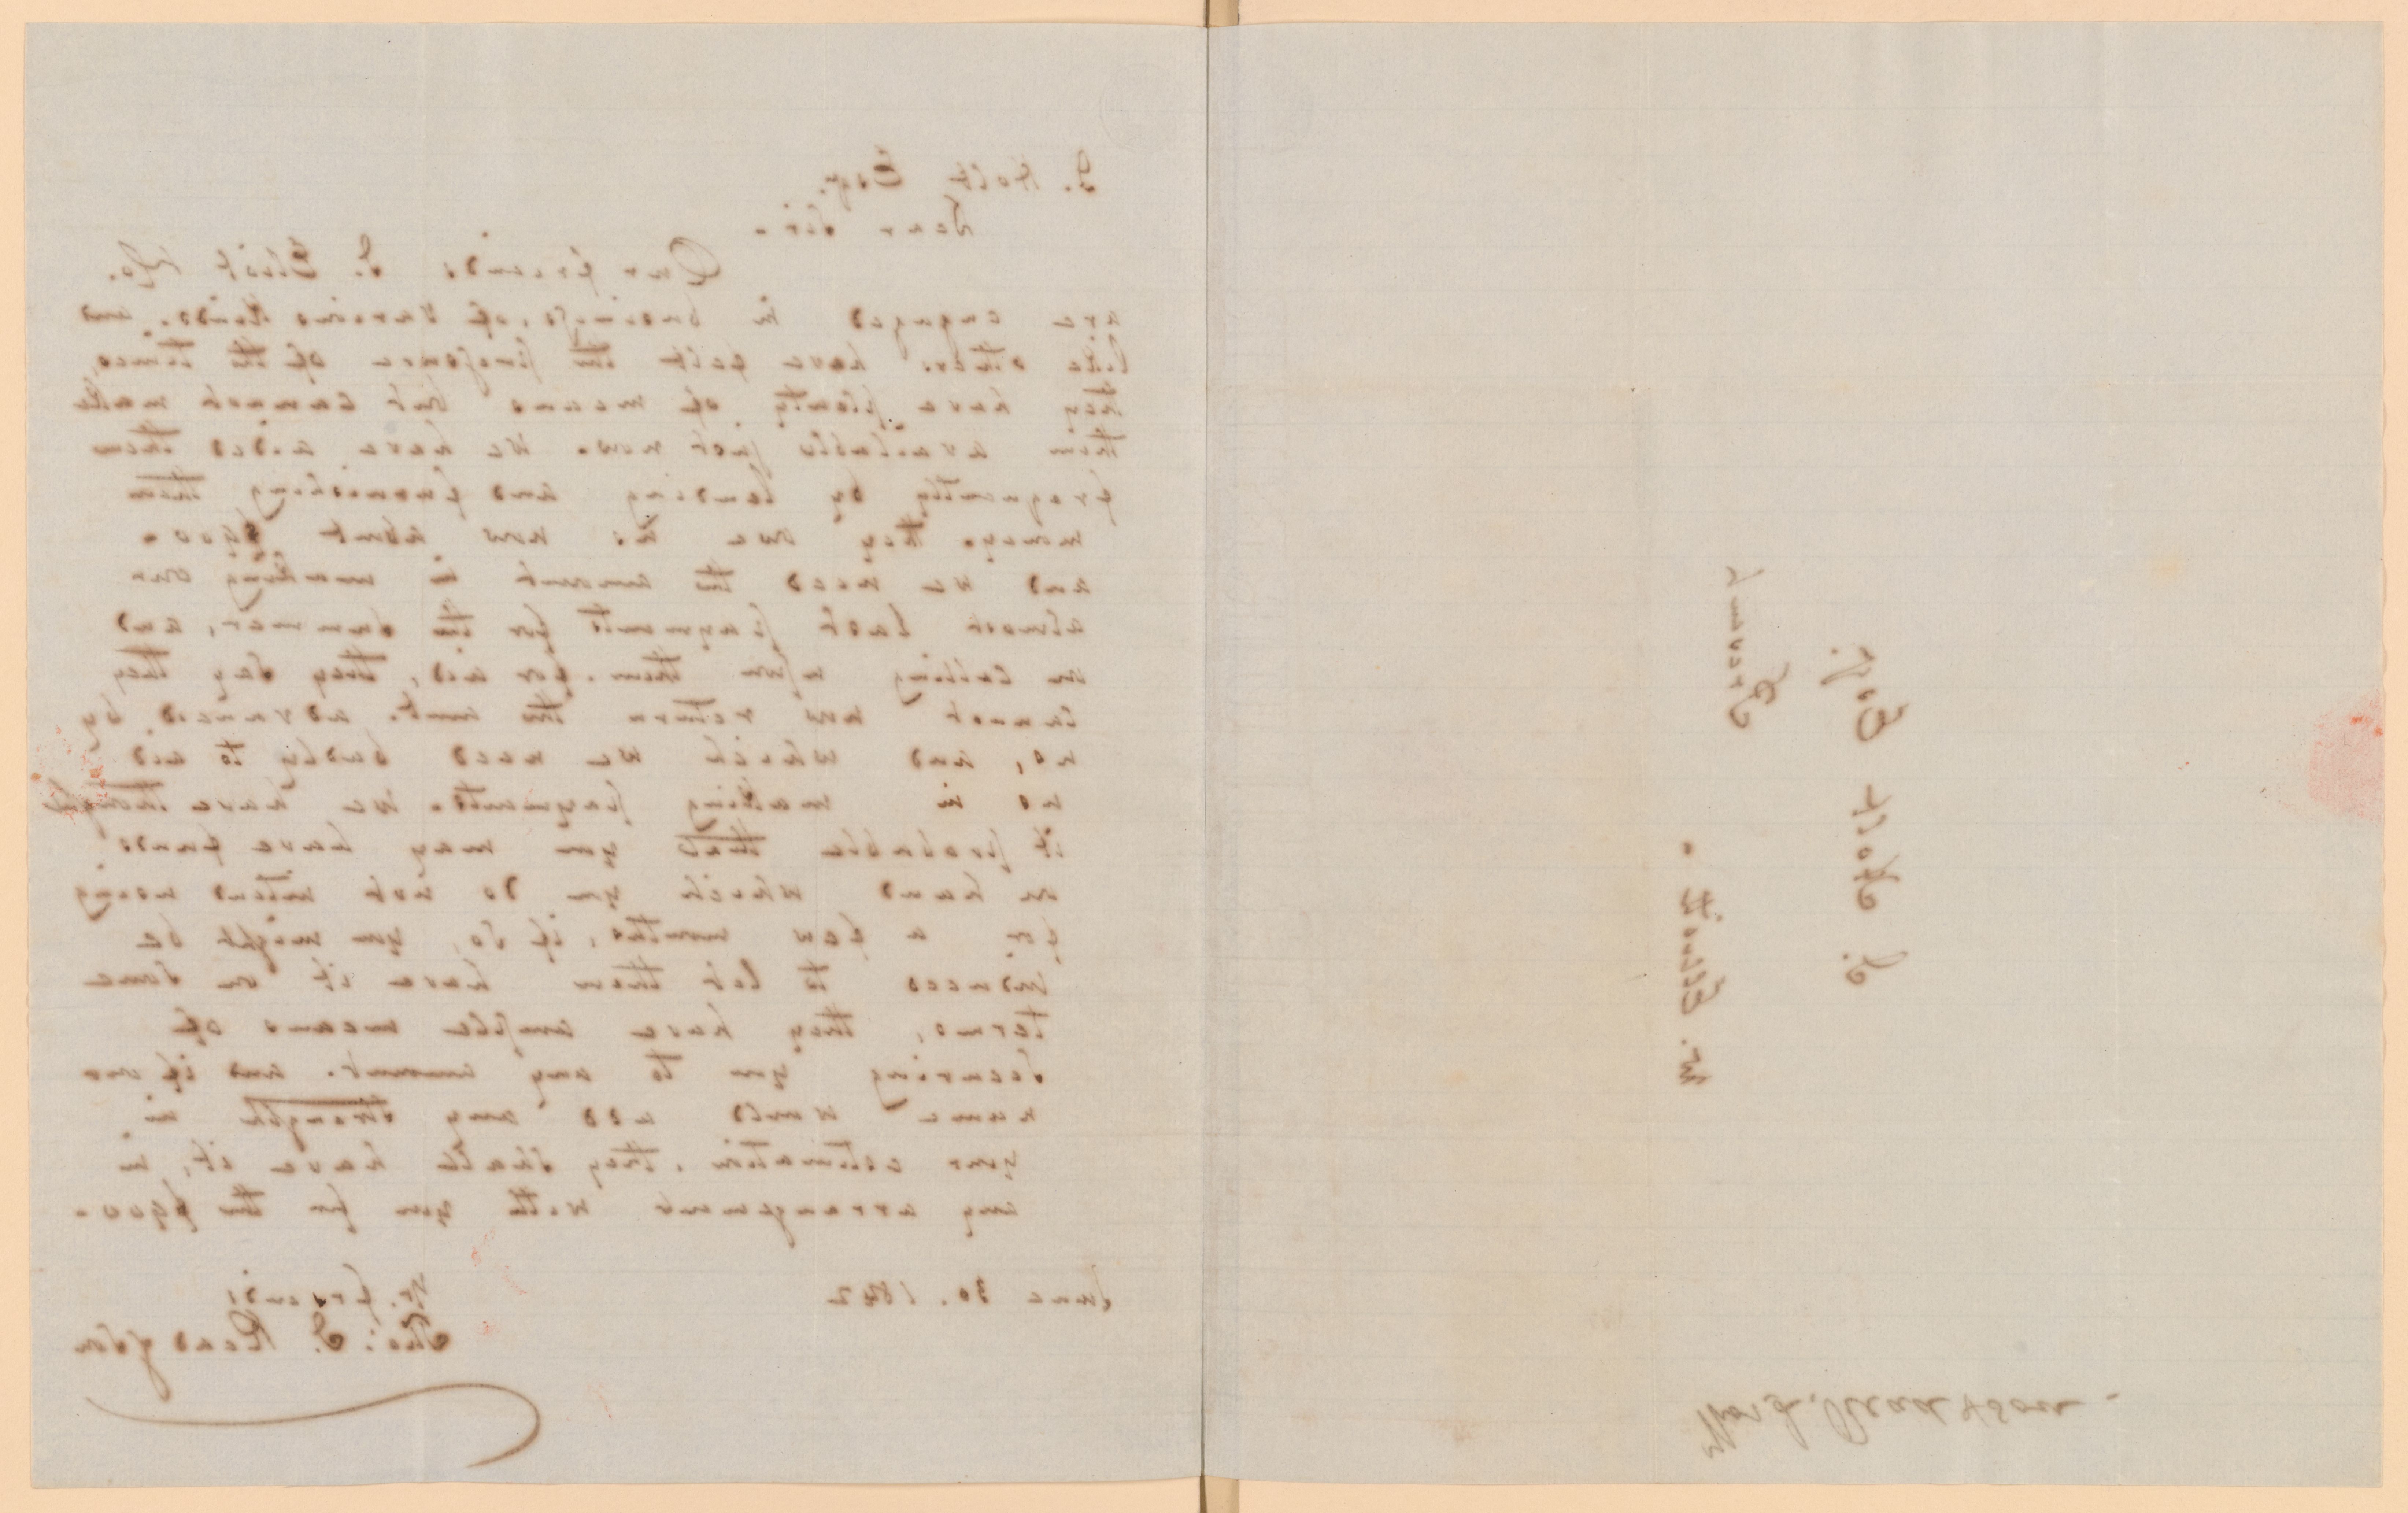 J. Holt Esq.
Dear Sir.
Our friends J. Eliot & Co.
are engaged in business, of various kinds. and
like others have felt the pressure of the times,
they have plenty of means but cannot make
them available just now. we have aided them
frequently by lending and furnishing them
money. they owe us now about $900.
and we need the amount in making our
almost last payments for the summer, and
in calling upon them for aid, they say they
cannot now return the amt. advanced by
us, and which we need badly to aid
us in making payments. we have thought
it probable that you may have funds
on hand which you do not intend using
for a few months, if so, you might be
induced to let them have it on some
terms, they have ample means of
securing you to any amount. and if our
name would add any strength in
your estimation, they shall have it, in
any arrangement with you for the $900.
June 30. 1842
Yr. friends
Tho: J. Read & Son
J. Holt Esqr.
Present
Mr. Elliott.
Thos. J. Read & Son